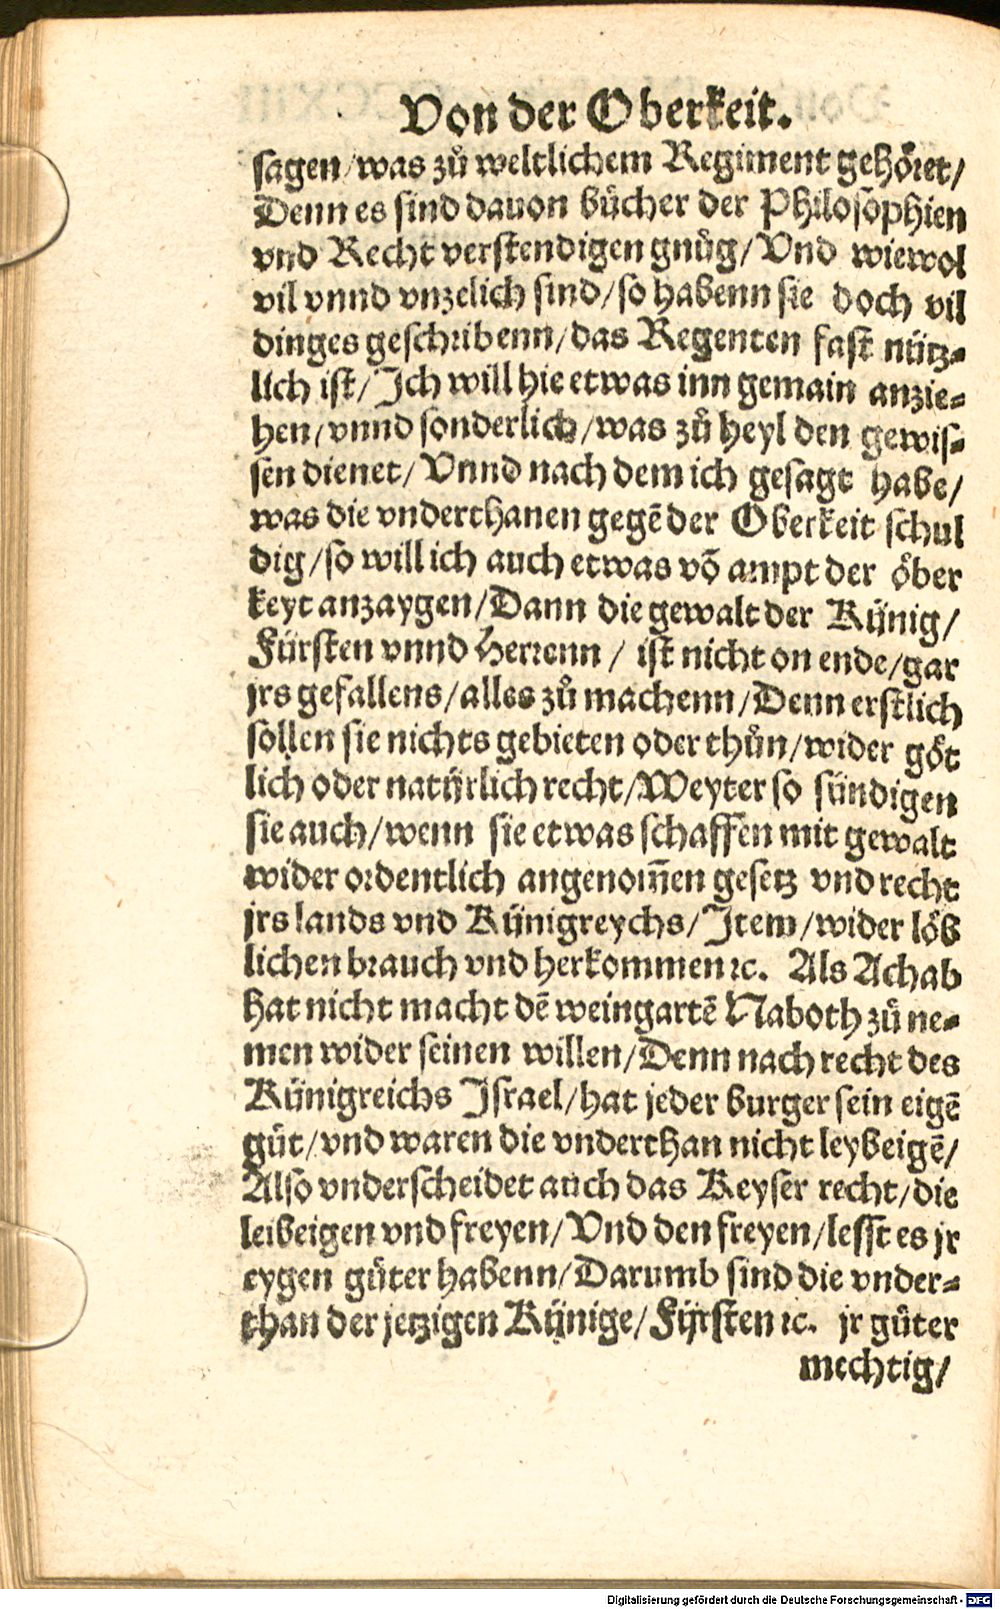 Von der Oberkeit.
sagen/was zů weltlichem Regiment gehöret/
Denn es sind dauon bücher der Philosophien
vnd Recht verstendigen gnůg/Vnd wiewol
vil vnnd vnzelich sind/so habenn sie doch vil
dinges geschribenn/das Regenten fast nütz-
lich ist/Ich will hie etwas inn gemain anzie-
hen/vnnd sonderlich/was zů heyl den gewis-
sen dienet/Vnnd nach dem ich gesagt habe/
was die vnderthanen gegē der Oberkeit schul
dig/so will ich auch etwas võ ampt der öber
keyt anzaygen/Dann die gewalt der Künig/
Fürsten vnnd Herrenn/ ist nicht on ende/gar
jrs gefallens/alles zů machenn/Denn erstlich
sollen sie nichts gebieten oder thůn/wider göt
lich oder natürlich recht/Weyter so sündigen
sie auch/wenn sie etwas schaffen mit gewalt
wider ordentlich angenom̃en gesetz vnd recht
jrs lands vnd Künigreychs/Item/wider löb
lichen brauch vnd herkommen ꝛc. Als Achab
hat nicht macht dē weingartē Naboth zů ne-
men wider seinen willen/Denn nach recht des
Künigreichs Israel/hat jeder burger sein eigē
gůt/vnd waren die vnderthan nicht leybeigē/
Also vnderscheidet auch das Keyser recht/die
leibeigen vnd freyen/Vnd den freyen/lesst es jr
eygen güter habenn/Darumb sind die vnder-
than der jetzigen Künige/Fürsten ꝛc. jr güter
mechtig/
Digitalisierung gefördert durch die Deutsche Forschungsgemeinschaft - DFG